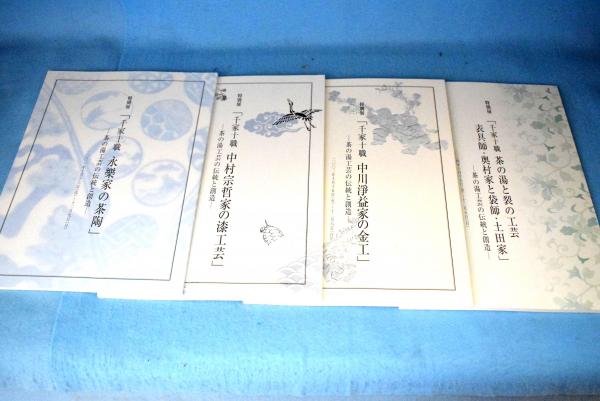 特別展
「千家十職 永樂家の茶陶」
―茶の湯工芸の伝統と創造―
特別展
「千家十職 中村宗哲家の漆工芸」
―茶の湯工芸の伝統と創造―
特別展
「千家十職 中川淨益家の金工」
―茶の湯工芸の伝統と創造―
特別展
「千家十職 茶の湯と裂の工芸
表具師・奥村家と袋師・土田家」
―茶の湯工芸の伝統と創造―